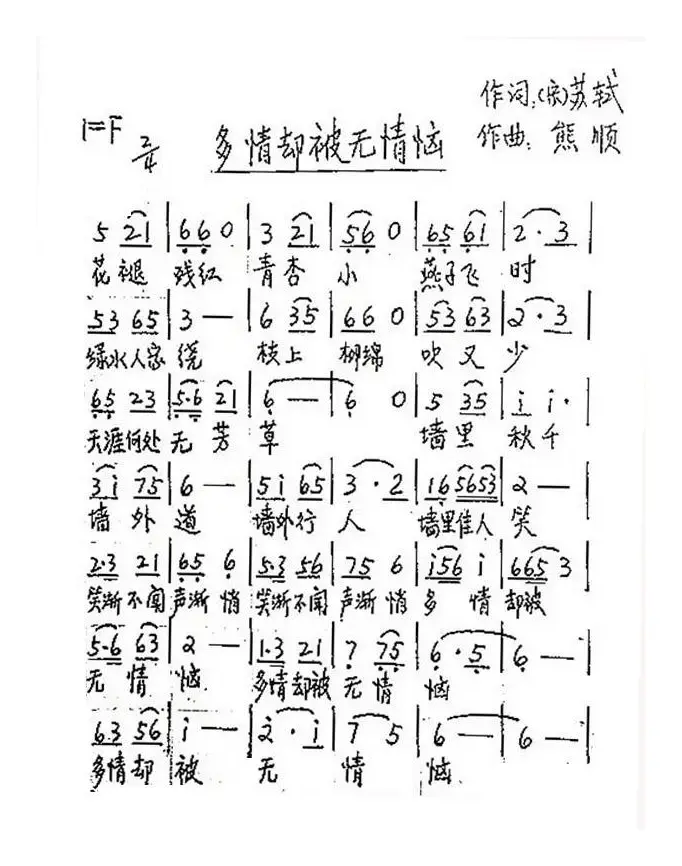 作词:(宋)苏轼
1=F 2/4 多情却被无情恼 作曲:熊顺
5 21 | 66 0 | 3 21 | 56 0 | 65 61 | 2·3 |
花褪 残红 青杏 小 燕子飞 时
53 65 | 3 — | 6 35 | 66 0 | 53 63 | 2·3 |
绿水人家 绕 枝上 柳绵 吹又 少
65 23 | 5·6 21 | 6 — | 6 0 | 5 35 | i i· |
天涯何处 无芳 草 墙里 秋千
3i 75 | 6 — | 5i 65 | 3·2 | 16 5653 | 2 — |
墙外 道 墙外行 人 墙里佳人 笑
2·3 21 | 65 6 | 5·3 56 | 75 6 | i56 i | 665 3 |
笑渐不闻 声渐悄 笑渐不闻 声渐悄 多情 却被
5·6 63 | 2 — | 1·3 21 | 7 75 | 6·5 | 6 — |
无情 恼 多情却被 无情 恼
63 56 | i — | 2·i | 7 5 | 6 — | 6 — |
多情却 被 无 情 恼